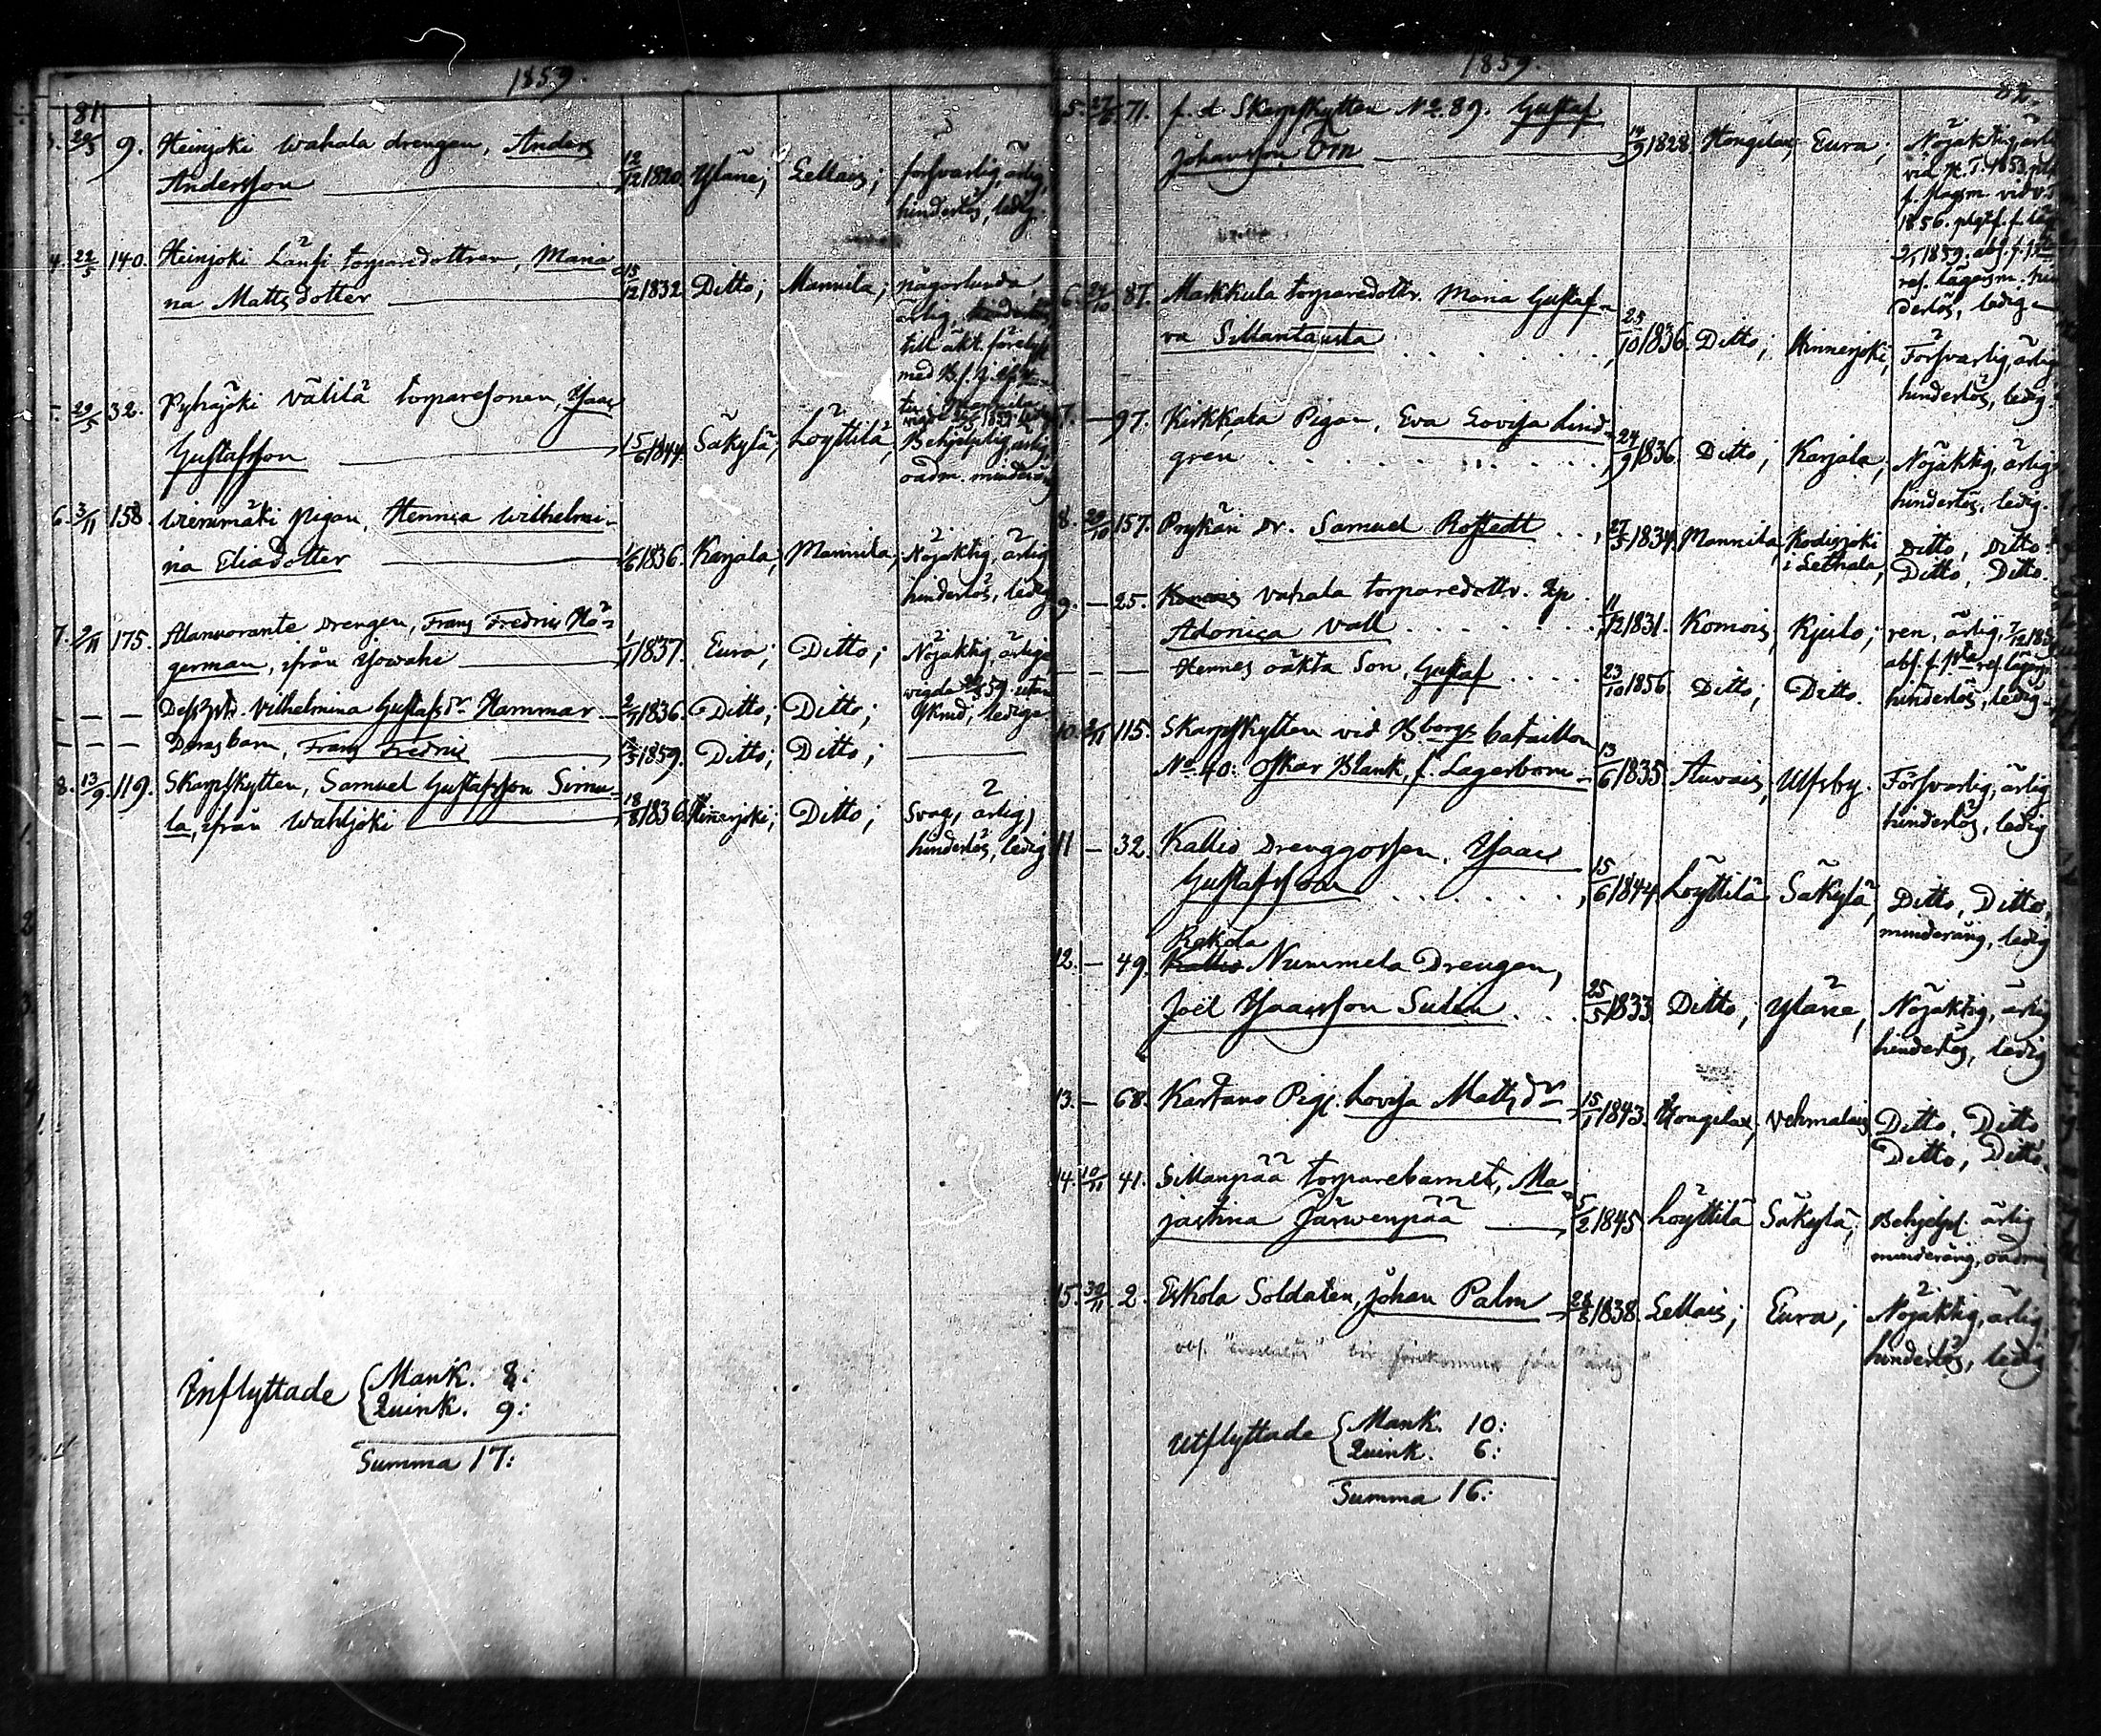 1859.
81
3. 20/3 9. Heinjoki Wahala drengen, Anders
Andersson 12/12 1820. Yläne; Lellais; försvarlig, ärlig,
hinderlös, ledig.
4. 22/5 140. Heinjoki Länsi torparedottren, Maria
na Mattsdotter 15/12 1832 Ditto; Mannila; någorlunda,
ärlig,
till äkt.
med
5. 29/5 32. Pyhäjoki Välilä torparesonen, Isaac
Gustafsson 15/6 1844. Säkylä; Löyttilä; Behjelplig, ärlig,
oadm. minderårig
6. 3/11 158. pigan, Henrica Wilhelmi-
na Eliadotter 1/6 1836. Karjala; Mannila; Nöjaktig, ärlig
hinderlös, ledig
7. 9/11 175. drengen, Frans Fredric Hä-
german, ifrån 1/1 1837. Eura; Ditto; Nöjaktig, ärliga
vigda 59. utan
— — — Dess hu. Vilhelmina Gustafsdr. Hammar 2/7 1836. Ditto; Ditto; lediga
— — — Deras barn, Frans Fredric 1859. Ditto; Ditto;
8. 13/9 119. Skarpskytten, Samuel Gustafsson Simu-
la, ifrån Wahljoki 18/8 1836. Hinerjoki; Ditto; Svag, ärlig,
hinderlös, ledig
Inflyttade { Mank. 8:
Quink. 9:
Summa 17:
1859.
82.
5. 27/6 71. f. d. Skarpskytten No 2. 89. Gustaf
Johansson Örn 14/9 1828. Hongilax; Eura; Nöjaktig, ärlig
vid 1853
1856.
1859. abs. f.
ref. lägersm. hin
derlös, ledig
6. 24/10 87. Markkula torparedottr. Maria Gustaf-
va Sillantausta 25/10 1836. Ditto; Hinnerjoki; Försvarlig, ärlig
hinderlös, ledig.
7. — 97. Kirkkala Pigan, Eva Lovisa Lind-
gren 24/9 1836. Ditto; Karjala, Nöjaktig, ärlig
hinderlös, ledig.
8. 29/10 157. Prykäri dr. Samuel Rostedt 27/3 1834. Mannila, Kodisjoki
i Lethala, Ditto, Ditto.
Ditto, Ditto.
9. — 25. Vahala torparedottr. Hp.
Adonica Vall 11/12 1831. Komois; Kjulo; ren, ärlig,
hinderlös, ledig
— — — Hennes oäkta Son, Gustaf 23/10 1856. Ditto; Ditto.
10. 2/11 115. Skarpskytten vid B.borgs bataillon
No 40. Oskar Blank, f. Lagerbom 13/6 1835. Auvais, Ulfsby. Försvarlig, ärlig
hinderlös, ledig
11 — 32. Kallio Drenggossen, Isaac
Gustafsson 15/6 1844. Löyttilä, Säkylä, Ditto, Ditto,
minderårig, ledig
Rekola
12. — 49. Kallio Nummela Drengen,
Joël Isaacsson Sulen 25/5 1833. Ditto; Yläne, Nöjaktig, ärlig
hinderlös, ledig
13. — 68. Kartano Pig. Lovisa Matts dr 15/1 1843. Hongilax; Vehmalais, Ditto, Ditto
Ditto, Ditto.
14. 10/11 41. Sillanpää torparebarnet, Ma-
jastina Järwenpää 5/2 1845. Löyttilä Säkylä; Behjelpl. ärlig
minderårig, oadm.
15. 30/11 2. Eskola Soldaten, Johan Palm 28/8 1838. Lellais; Eura; Nöjaktig, ärlig,
hinderlös, ledig
Utflyttade { Mank. 10:
Quink. 6:
Summa 16: